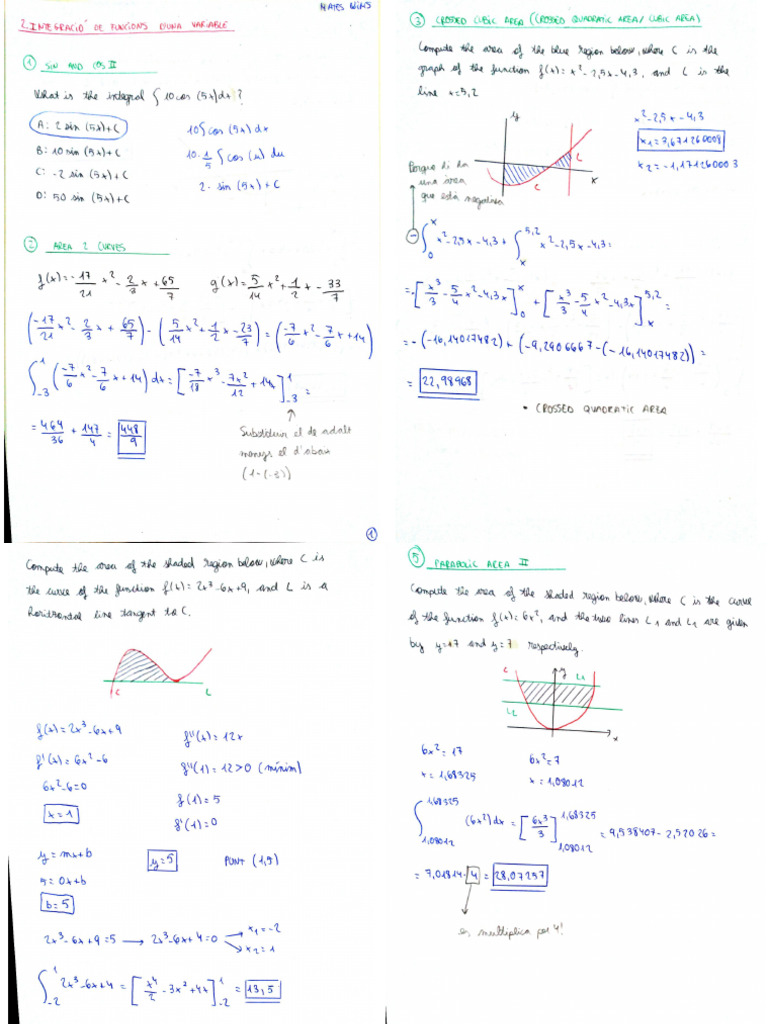 MATES
2. INTEGRACIÓ DE FUNCIONS D'UNA VARIABLE
① SIN AND COS II
What is the integral ∫ 10 cos (5x)dx ?
A: 2 sin (5x)+C
B: 10 sin (5x)+C
C: -2 sin (5x)+C
D: 50 sin (5x)+C
10∫cos (5x) dx
10·1/5 ∫cos (u) du
2· sin (5x)+C
② AREA 2 CURVES
f(x)=-17/21 x²-2/3 x+65/7 g(x)=5/14 x²+1/2 x-33/7
(-17/21 x²-2/3 x+65/7)-(5/14 x²+1/2 x-23/7)=(-7/6 x²-7/6 x+14)
∫₋₃¹(-7/6 x²-7/6 x+14)dx=[-7/18 x³-7x²/12+14x]₋₃¹=
=464/36+147/4=448/9
Substituir el de adalt
menys el d'abaix
(1-(-3))
1
③ CROSSED CUBIC AREA (CROSSED QUADRATIC AREA/CUBIC AREA)
Compute the area of the blue region below, where C is the
graph of the function f(x)=x²-2,5x-4,3, and L is the
line x=5,2
x²-2,5x-4,3
x₁=7,671260009
x₂=-1,171260003
y
L
C
x
Porque di da
una àrea
que està negativa
-∫₀ˣ x²-2,5x-4,3+∫ₓ^5,2 x²-2,5x-4,3=
=-[x³/3-5/4 x²-4,3x]₀ˣ+[x³/3-5/4 x²-4,3x]ₓ^5,2=
=-(-16,14017482)+(-9,2906667-(-16,14017482))=
=22,98968
• CROSSED QUADRATIC AREA
Compute the area of the shaded region below, where C is
the curve of the function f(x)=2x³-6x+9, and L is a
horitzontal line tangent to C.
C L
f(x)=2x³-6x+9
f'(x)=6x²-6
6x²-6=0
x=1
f''(x)=12x
f''(1)=12>0 (mínim)
f(1)=5
f'(1)=0
y=mx+b
5=0x+b
b=5
y=5
PUNT (1,5)
2x³-6x+9=5 → 2x³-6x+4=0
x₁=-2
x₂=1
∫₋₂¹ 2x³-6x+4=[x⁴/2-3x²+4x]₋₂¹=13,5
⑤ PARABOLIC AREA II
Compute the area of the shaded region below, where C is the curve
of the function f(x)=6x², and the two lines L₁ and L₂ are given
by y=17 and y=7 respectively.
C y L₁
L₂
x
6x²=17
x=1,68325
6x²=7
x=1,08012
∫1,08012^1,68325 (6x²)dx=[6x³/3]1,08012^1,68325=9,538407-2,52026=
=7,01814·4=28,07257
es multiplica per 4!